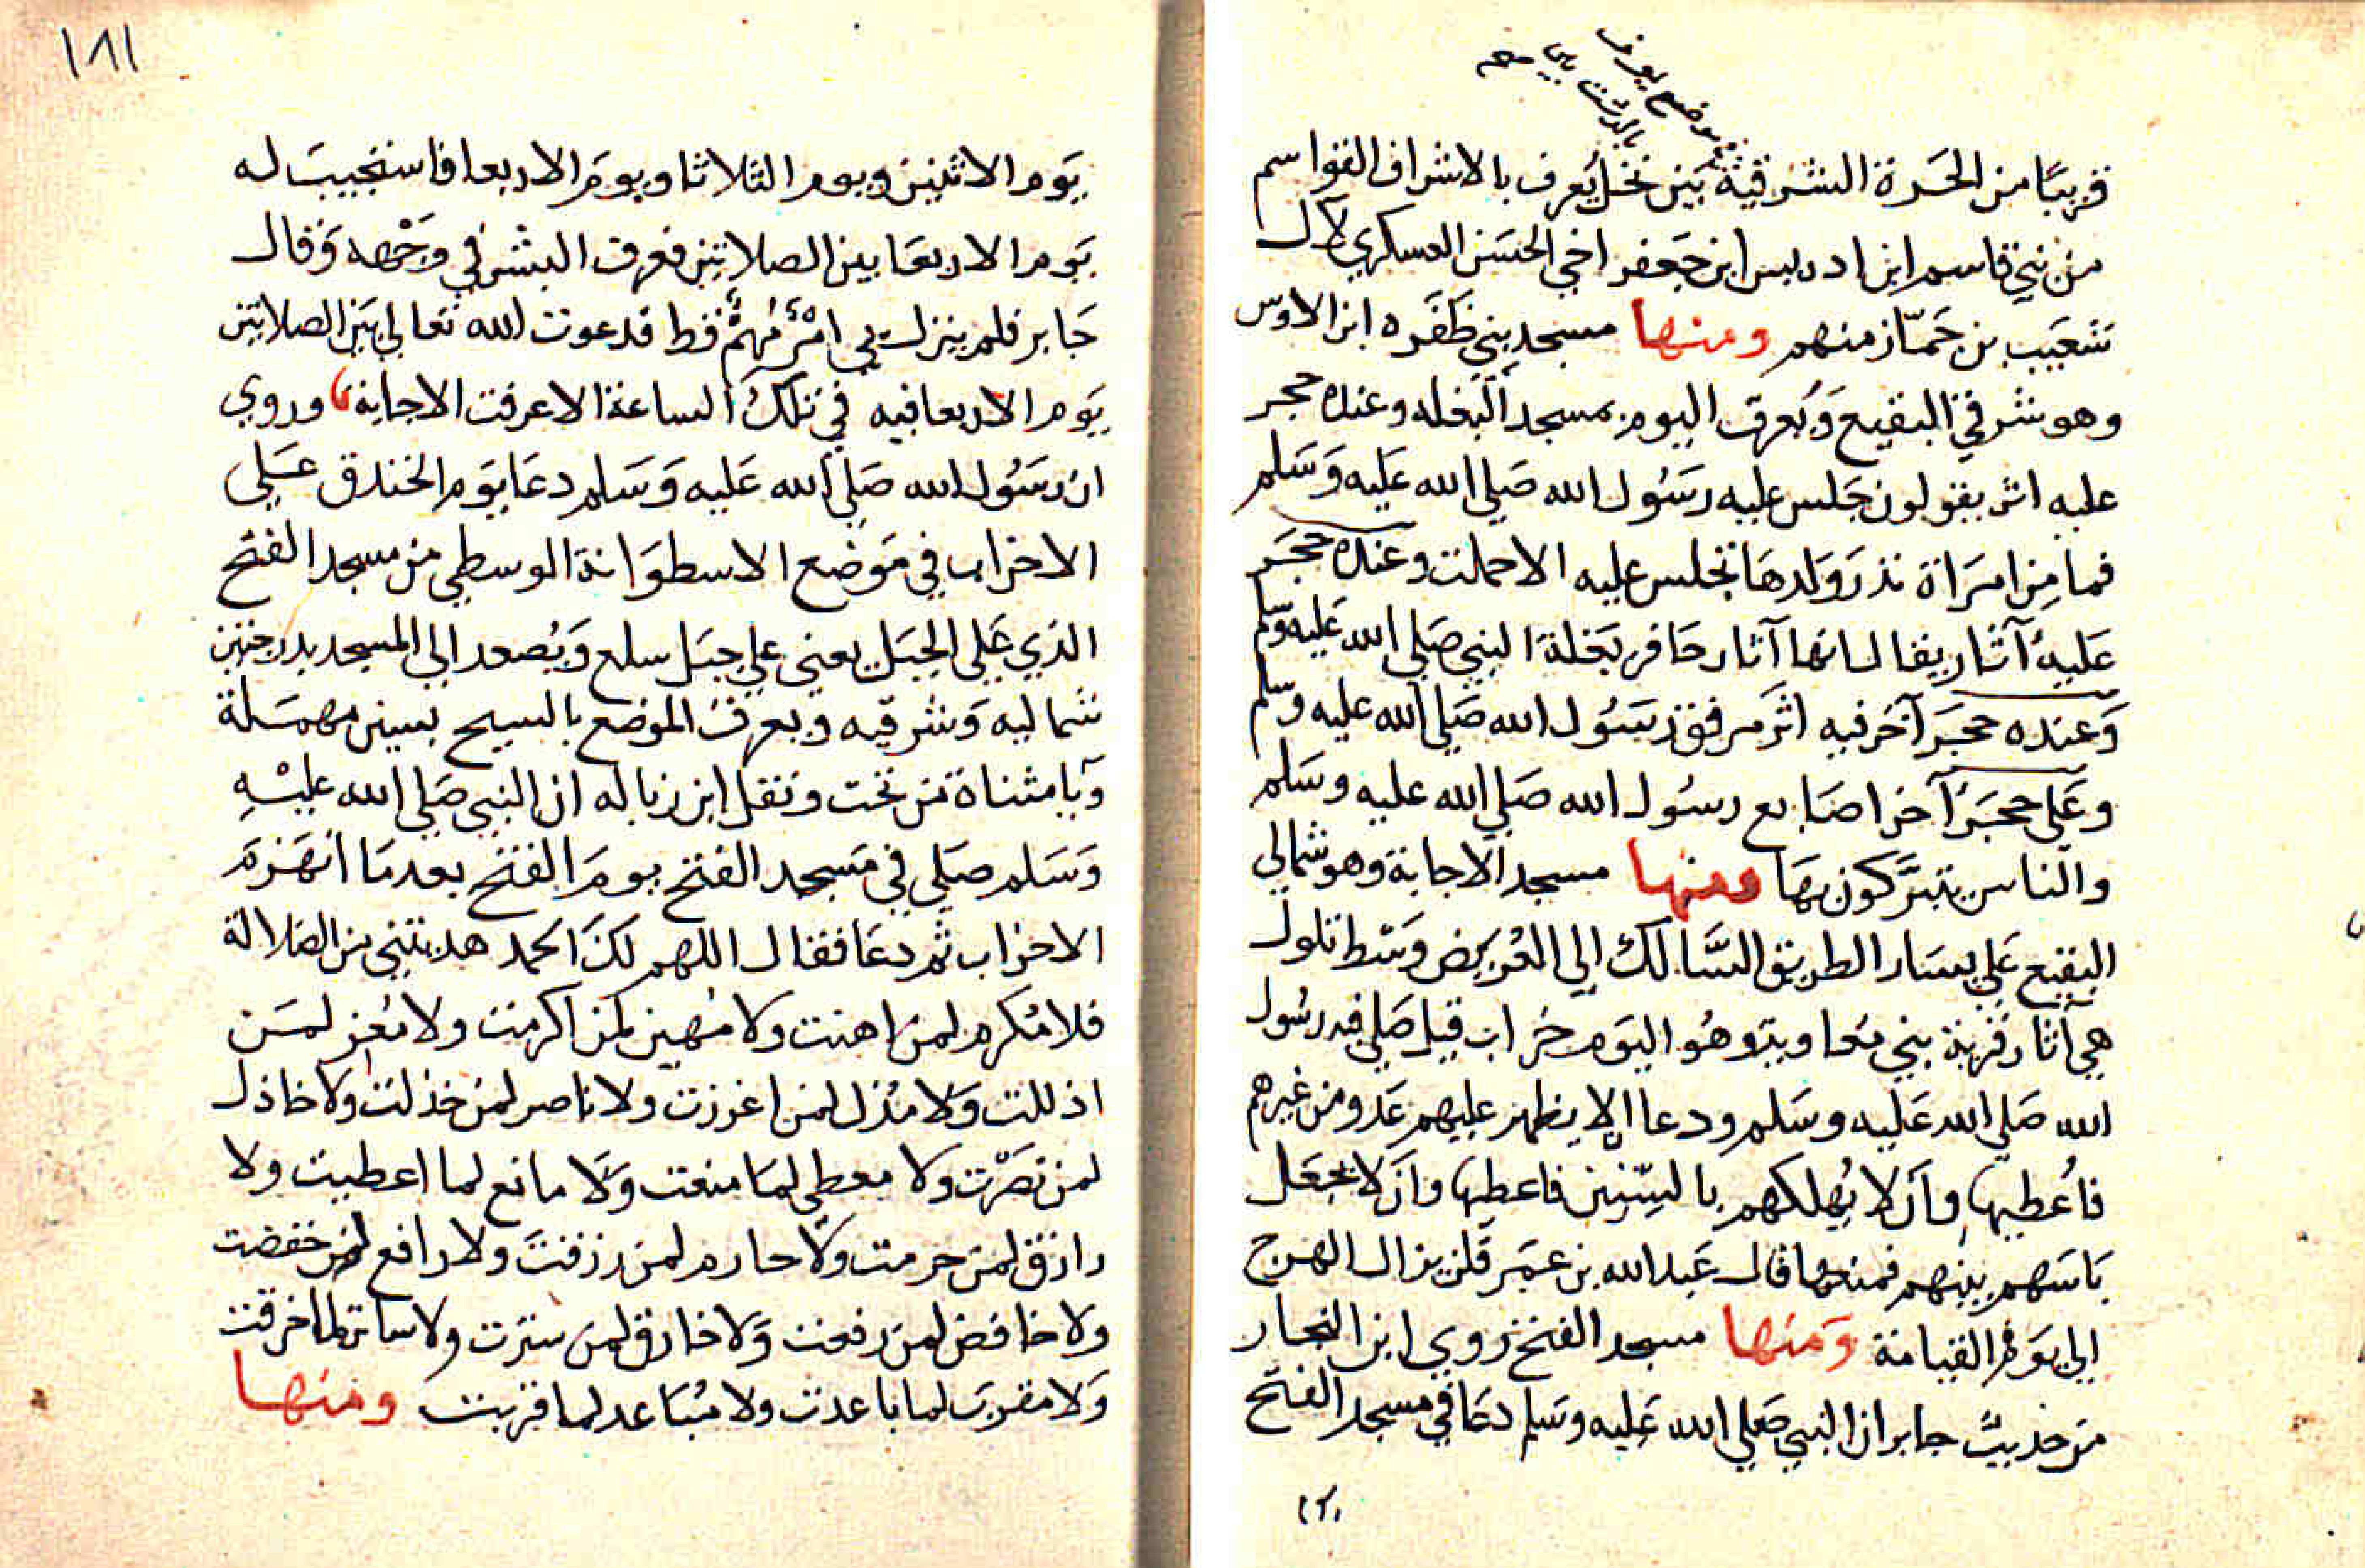 موضع يعرف
بالدشت
صح
قريبًا من الحَرة الشرقية بَين نخل يُعرف بالاشراف القواسم
من بني قاسم ابن ادريس ابن جَعفر اخي الحسَن العسكري لآل
شعَيب بن حَمّاز منهم ومنها مسجد بني ظَفَره ابن الاوس
وهو شرقي البقيع وَيُعرف اليوم بمسجد البَغله وعنده حجر
عليه اثر يقولون جَلس عليه رسَول الله صَلي الله عَليه وَسَلم
فما مِن امرَاة نذر وَلدهَا تجلس عليه الا حملت وعنده حجَر
عَليه آثار يقال انها آثار حَافر بَغلة النبي صَلي الله عَليه وسّلم
وَعنده حجَر آخَر فيه اثر مرفق رسَول الله صَلي الله عليه وسّلم
وعَلي حجَر آخر اصَابع رسُول الله صَلي الله عليه وسَلم
والناس يتبَرَّكون بهَا ومنها مسجد الاجابة وهو شمالي
البقيع عَلي يسَار الطريق السَّالك الي العُريض وسَط تلول
هي آثار قرية بني معَاوية وهُو اليَوم خرَاب قيل صَلي فيه رسُول
الله صَلي الله عَليه وسَلم ودعا الا يظهر عليهم عَدو من غيرهم
فاُعطيها وان لا يُهلكهم بالسِّنين فاعطيها وان لا يجعَل
بَاسَهم بينهم فمنعها قال عَبد الله بن عمَر فلن يزال الهرج
الي يَوم القيامة ومنها مسجد الفتح روي ابن النجار
من حديث جابر ان النبي صَلي الله عَليه وسَلم دعَا في مسجد الفتح
١٨١
يَوم الاثنين ويوم الثلاثا ويومَ الاربعا فاستجيبَ له
يَوم الاربعَا بين الصلاتين فعرف البشر في وَجْهه وَقال
جَابر فلم ينزل بي امْر مُهِمّ قط فدعوت الله تعالي بَين الصلاتين
يَوم الاربعا فيه في تلكَ الساعة الا عرفت الاجابة وروي
ان رسَول الله صَلي الله عَليه وَسَلم دعَا يَوم الخندق عَلي
الاحزاب في مَوضع الاسطوَانة الوسطي من مسجد الفتح
الذي عَلي الجبَل يعني علي جبَل سلع وَيُصعد الي المسجد بدرجتين
شماليه وَشرقيه ويعرف الموضع بالسيح بسين مهمَلة
وَيا مثناة من تحت ونقل ابن زباله ان النبي صَلي الله عليْهِ
وَسَلم صَلي في مَسجد الفتح يومَ الفتح بعد مَا انهَزمَ
الاحزاب ثم دعَا فقال اللهم لكَ الحمد هديتني من الضلالة
فلا مُكرم لمن اهنت ولا مُهين لمن اكرمت ولا مُعِز لمَن
اذللت وَلا مُذل لمن اعززت ولا ناصر لمن خذلت ولا خاذل
لمن نصَرْت ولا معطي لمَا منعت وَلا مانع لما اعطيت ولا
رازق لمن حرمت ولا حارم لمن رزقت ولا رافع لمن خفضت
ولا خافض لمن رفعت وَلا خارق لمن سترت ولا ساتر لما خرقت
وَلا مقربَ لما باعدت ولا مُبَاعد لما قربت ومنها